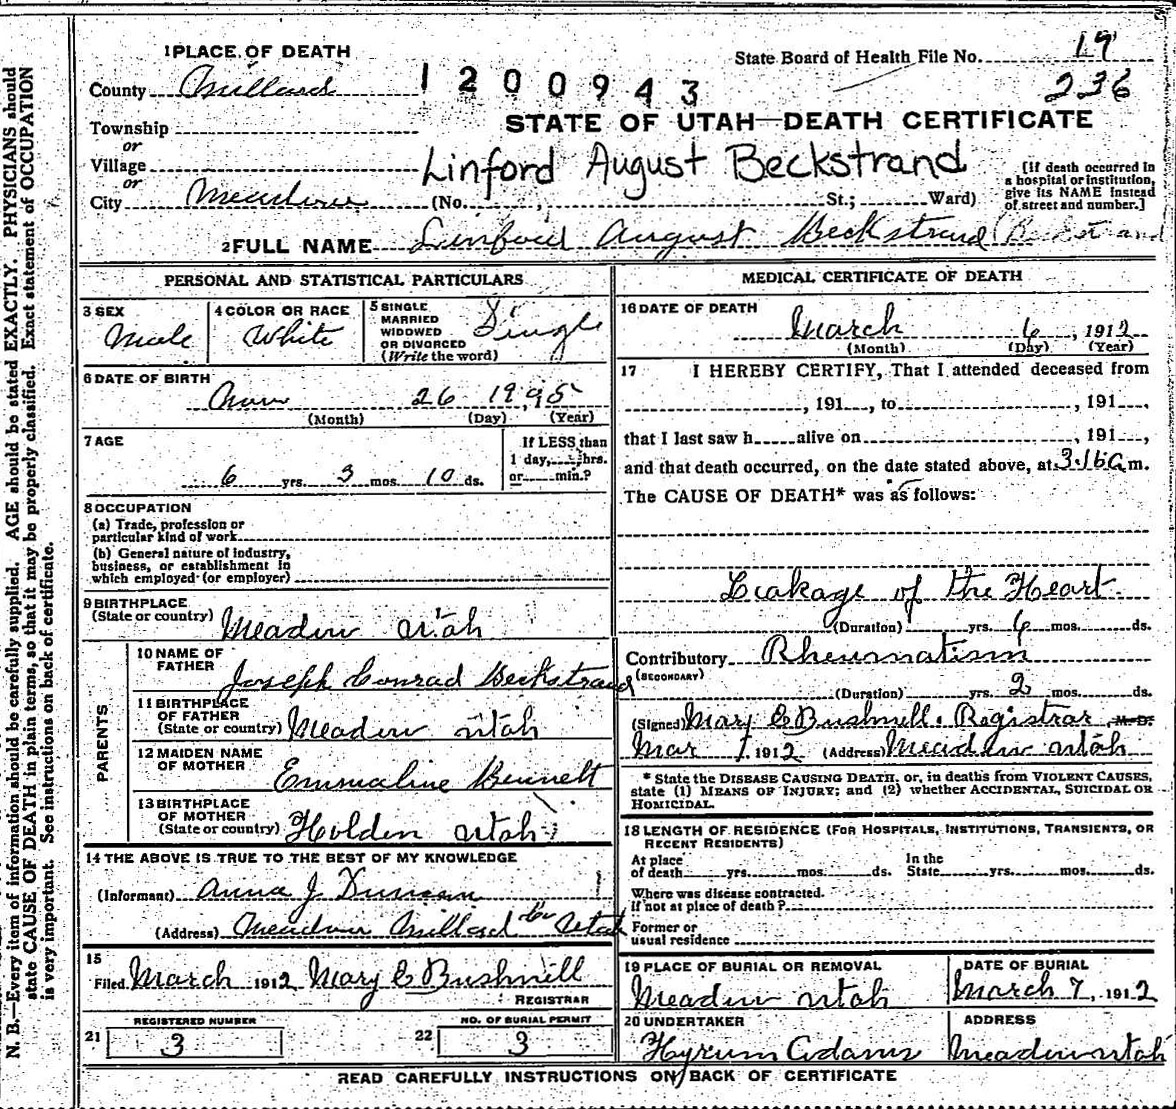 1 PLACE OF DEATH
State Board of Health File No. 19
County Millard
1200943
236
STATE OF UTAH—DEATH CERTIFICATE
Township
or
Village
or
Linford August Beckstrand
[If death occurred in a hospital or institution, give its NAME instead of street and number.]
City Meadow (No. , St.; Ward)
2 FULL NAME Linford August Beckstrand (Beckstrand
PERSONAL AND STATISTICAL PARTICULARS
3 SEX Male
4 COLOR OR RACE White
5 SINGLE MARRIED WIDOWED OR DIVORCED (Write the word) Single
6 DATE OF BIRTH
26
(Month) (Day) (Year)
7 AGE
6 yrs. 3 mos. 10 ds.
If LESS than 1 day, hrs. or min.?
8 OCCUPATION
(a) Trade, profession or particular kind of work
(b) General nature of industry, business, or establishment in which employed (or employer)
9 BIRTHPLACE
(State or country) Meadow Utah
PARENTS
10 NAME OF FATHER Joseph Conrad Beckstrand
11 BIRTHPLACE OF FATHER (State or country) Meadow Utah
12 MAIDEN NAME OF MOTHER Emmaline Bennett
13 BIRTHPLACE OF MOTHER (State or country) Holden Utah
14 THE ABOVE IS TRUE TO THE BEST OF MY KNOWLEDGE
(Informant) Anna J Duncan
(Address) Meadow Millard Co Utah
15
Filed March 1912 Mary E Bushnell
REGISTRAR
21 REGISTERED NUMBER 3
22 NO. OF BURIAL PERMIT 3
MEDICAL CERTIFICATE OF DEATH
16 DATE OF DEATH
March 6, 1912
(Month) (Day) (Year)
17 I HEREBY CERTIFY, That I attended deceased from
, 191 , to , 191 ,
that I last saw h alive on , 191 ,
and that death occurred, on the date stated above, at m.
The CAUSE OF DEATH* was as follows:
Leakage of the Heart
(Duration) yrs. 6 mos. ds.
Contributory Rheumatism
(SECONDARY)
(Duration) yrs. 2 mos. ds.
(Signed) Mary E Bushnell. Registrar M. D.
Mar 1912 (Address) Meadow Utah
* State the DISEASE CAUSING DEATH, or, in deaths from VIOLENT CAUSES, state (1) MEANS OF INJURY; and (2) whether ACCIDENTAL, SUICIDAL OR HOMICIDAL.
18 LENGTH OF RESIDENCE (FOR HOSPITALS, INSTITUTIONS, TRANSIENTS, OR RECENT RESIDENTS)
At place of death yrs. mos. ds. In the State yrs. mos. ds.
Where was disease contracted. If not at place of death?
Former or usual residence
19 PLACE OF BURIAL OR REMOVAL
Meadow Utah
DATE OF BURIAL
March 7, 1912
20 UNDERTAKER
Hyrum Adams
ADDRESS
Meadow Utah
READ CAREFULLY INSTRUCTIONS ON BACK OF CERTIFICATE
N. B.—Every item of information should be carefully supplied. AGE should be stated EXACTLY. PHYSICIANS should
state CAUSE OF DEATH in plain terms, so that it may be properly classified. Exact statement of OCCUPATION
is very important. See instructions on back of certificate.